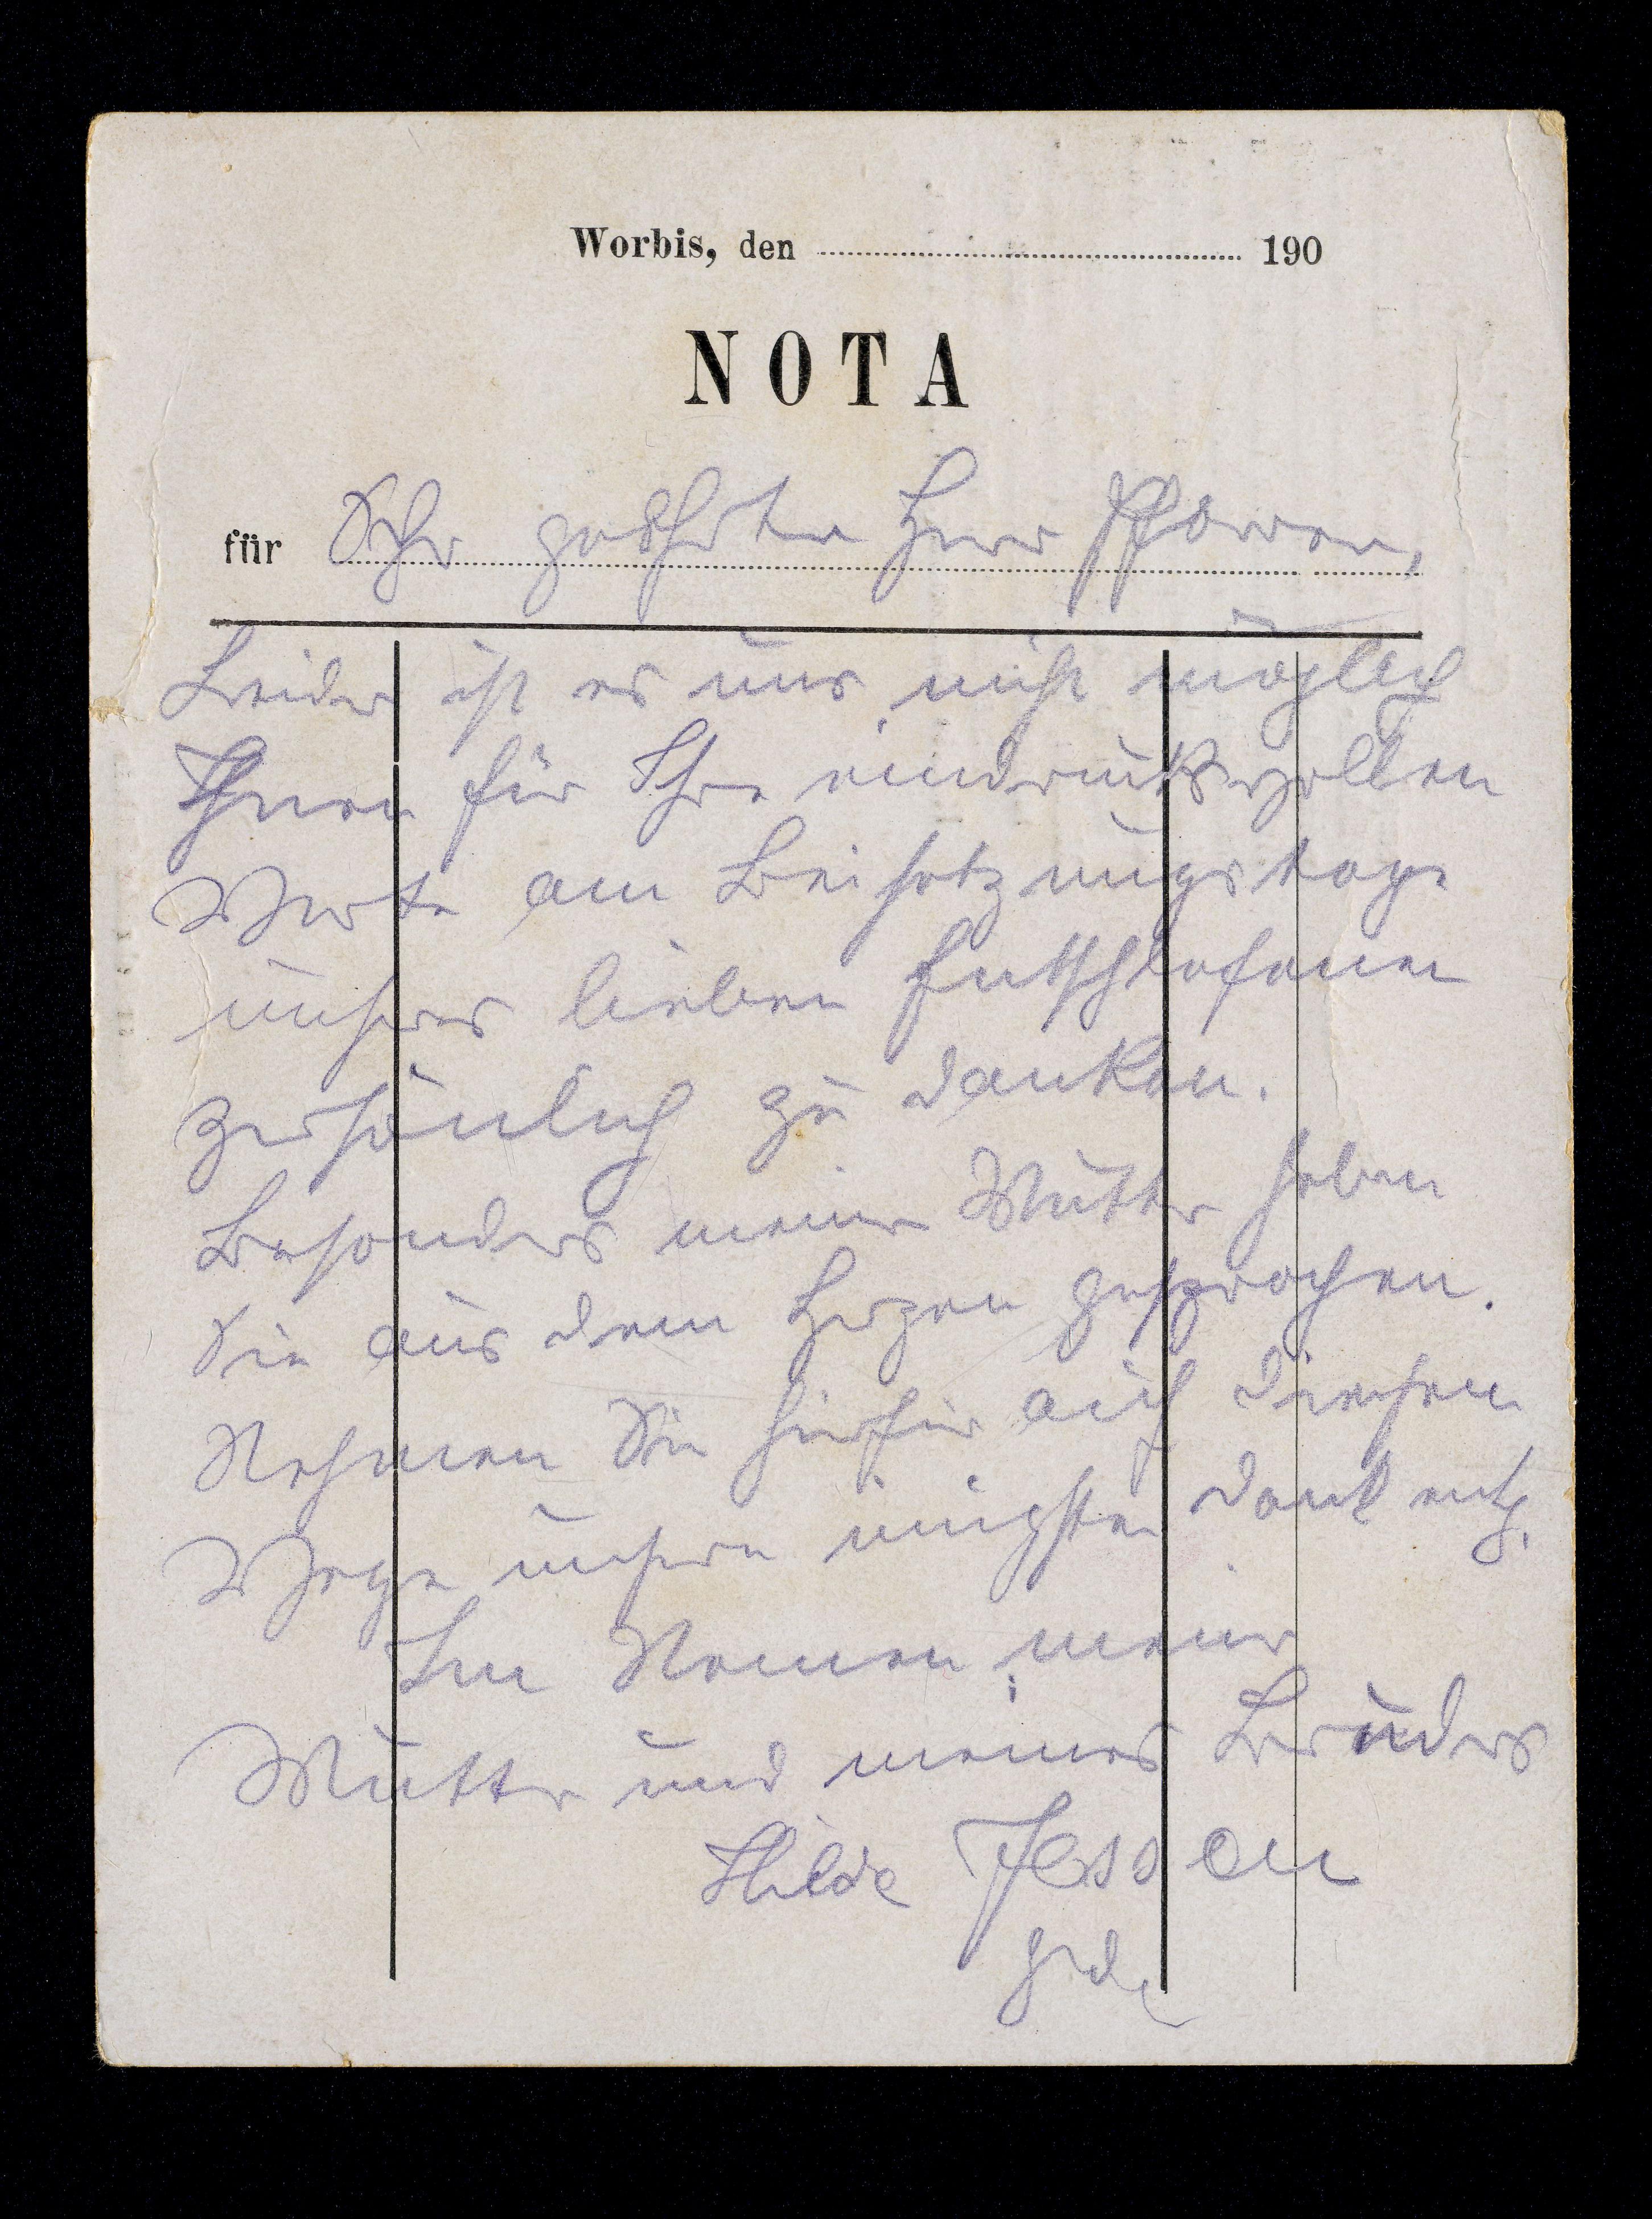 Worbis, den 190
NOTA
für Sehr geehrter Herr Pfarrer,
Leider ist es uns nicht möglich
Ihnen für Ihre eindrucksvollen
Worte am Beisetzungstage
unseres lieben Entschlafenen
persönlich zu danken.
Besonders meiner Mutter haben
Sie aus dem Herzen gesprochen.
Nehmen Sie hierfür auf diesem
Wege unsern innigsten Dank entg.
Im Namen meiner
Mutter und meines Bruders
Hilde Jessen